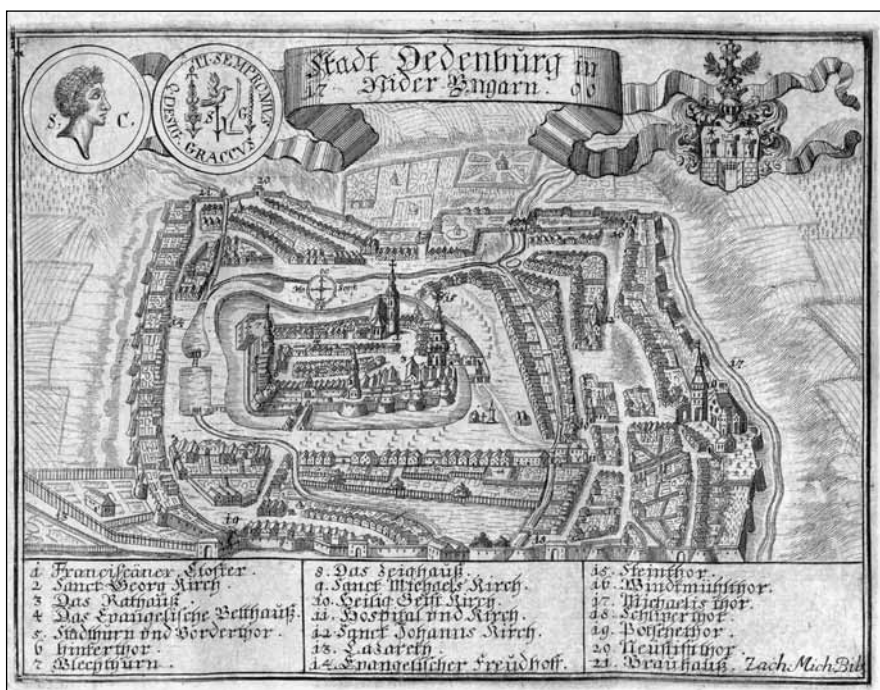 Stadt Oedenburg in
17 Nider Ungarn. 00
S. C.
TI·SEMPRONIUS
GRACCVS
S G
C·DESIG
1 Franciscaner Closter.
2 Sanct Georg Kirch.
3 Das Rathauß.
4 Das Evangelische Betthauß.
5. Stadthurn und Vorderthor.
6 Hinterthor.
7 Blechthurn.
8. Das Zeighauß.
9. Sanct Michaels Kirch.
10. Heilig Geist Kirch.
11. Hospital und Kirch.
12. Sanct Johanns Kirch.
13. Lazareth.
14. Evangelischer Freudhoff.
15. Steinthor.
16. Windtmühlthor.
17. Michaelis thor.
18. Schliperthor.
19. Potschethor.
20. Neustifthor.
21. Brauhauß. Zach. Mich. Bil